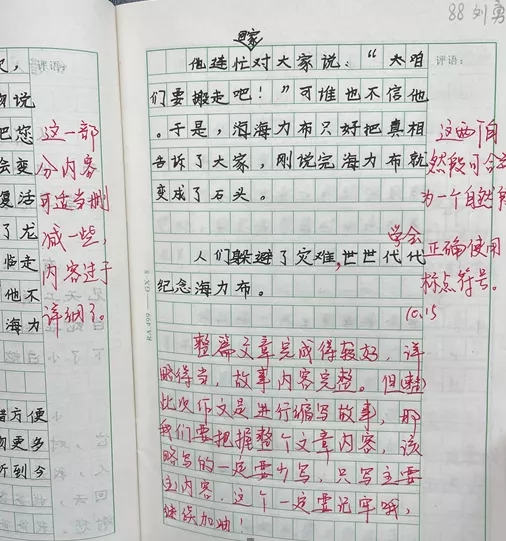 88 刘勇
评语：
说
把您
会变
复活
了龙
临走
他不
海力
借方便
物更多
听到今
这一部
分内容
可适当删
减一些，
内容过于
详细了。
回家
他连忙对大家说：“大咱
们要搬走吧！”可谁也不信他
。于是，海海力布只好把真相
告诉了大家，刚说完海力布就
变成了石头。
人们躲避了灾难，世世代代
纪念海力布。
评语：
这两个自
然段可合并
为一个自然段
学会
正确使用
标点符号。
10.15
RA 499 GX-8
整篇文章完成得较好，详
略得当，故事内容完整。但
此次作文是进行缩写故事，那
我们要把握整个文章内容，该
略写的一定要少写，只写主要
内容，这个一定要记牢哦，
继续加油！